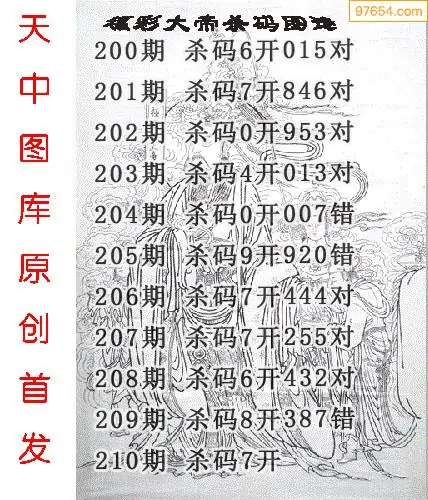 福彩大帝杀码图谜
97654.com
天中图库原创首发
200期 杀码6开015对
201期 杀码7开846对
202期 杀码0开953对
203期 杀码4开013对
204期 杀码0开007错
205期 杀码9开920错
206期 杀码7开444对
207期 杀码7开255对
208期 杀码6开432对
209期 杀码8开387错
210期 杀码7开